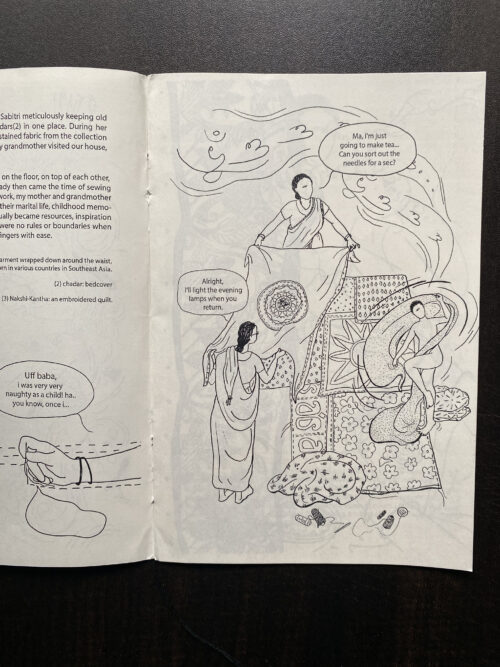 Sabitri meticulously keeping old
dars(2) in one place. During her
stained fabric from the collection
y grandmother visited our house,
on the floor, on top of each other,
ady then came the time of sewing
work, my mother and grandmother
their marital life, childhood memo-
ually became resources, inspiration
were no rules or boundaries when
fingers with ease.
arment wrapped down around the waist,
rn in various countries in Southeast Asia.
(2) chadar: bedcover
(3) Nakshi-Kantha: an embroidered quilt.
Uff baba,
i was very very
naughty as a child! ha..
you know, once i...
Ma, I'm just
going to make tea...
Can you sort out the
needles for a sec?
Alright,
I'll light the evening
lamps when you
return.